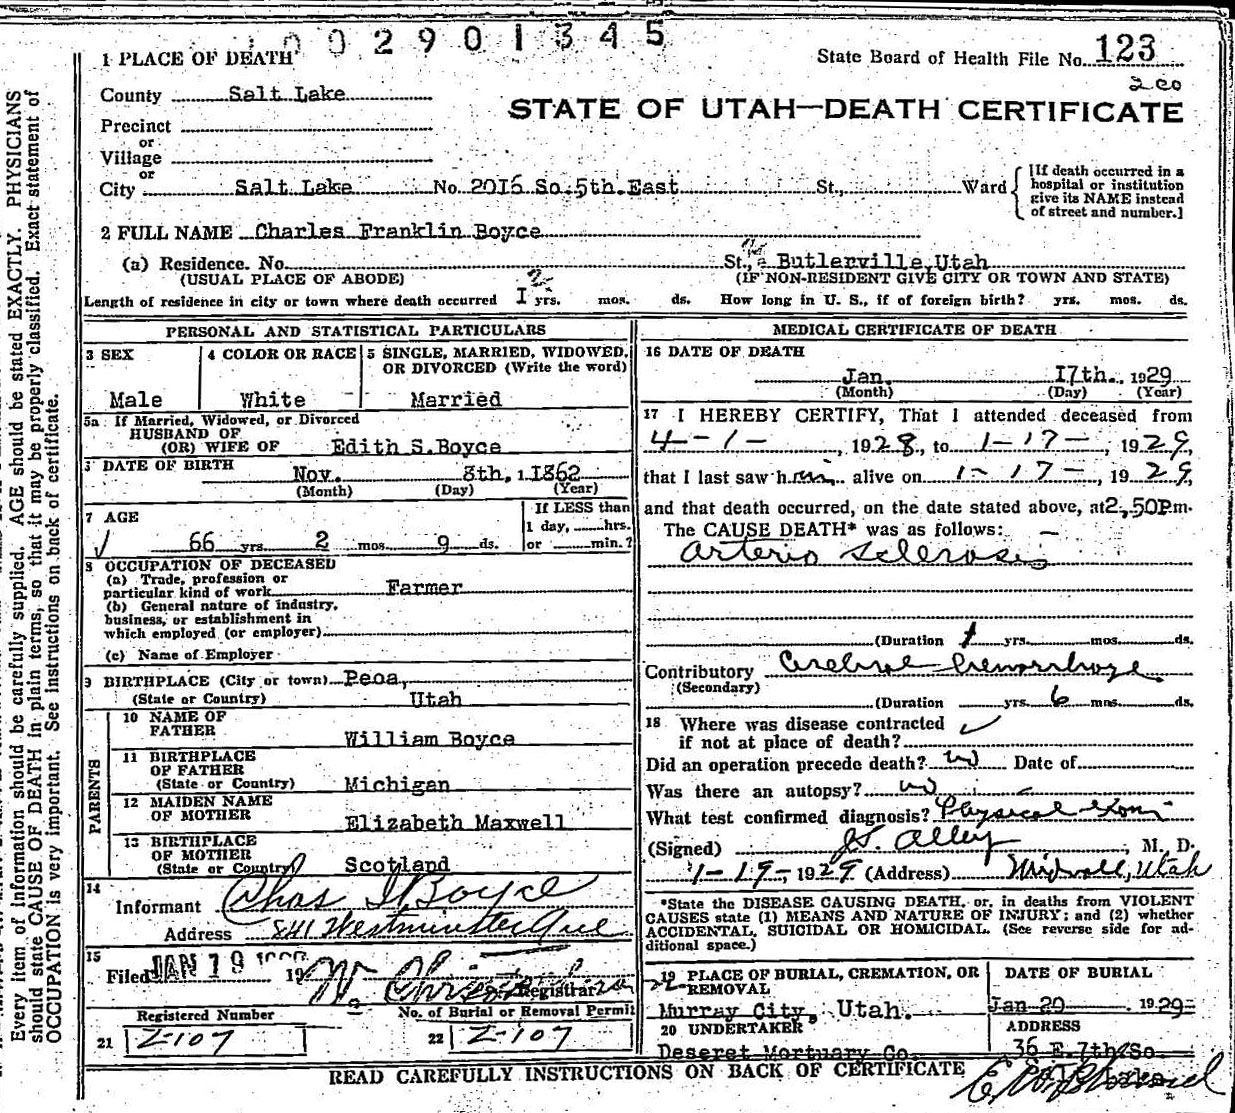 002901345
1 PLACE OF DEATH
State Board of Health File No. 123
200
County Salt Lake
STATE OF UTAH—DEATH CERTIFICATE
Precinct
or
Village
or
City Salt Lake No. 2016 So. 5th. East St., Ward
[If death occurred in a hospital or institution give its NAME instead of street and number.]
2 FULL NAME Charles Franklin Boyce
(a) Residence. No. St., Butlerville, Utah
(USUAL PLACE OF ABODE) (IF NON-RESIDENT GIVE CITY OR TOWN AND STATE)
Length of residence in city or town where death occurred yrs. mos. ds. How long in U. S., if of foreign birth? yrs. mos. ds.
PERSONAL AND STATISTICAL PARTICULARS
3 SEX
Male
4 COLOR OR RACE
White
5 SINGLE, MARRIED, WIDOWED, OR DIVORCED (Write the word)
Married
5a If Married, Widowed, or Divorced
HUSBAND OF
(OR) WIFE OF Edith S. Boyce
DATE OF BIRTH
Nov. 8th, 1862
(Month) (Day) (Year)
7 AGE
66 yrs. 2 mos. 9 ds.
If LESS than
1 day, hrs.
or min.?
8 OCCUPATION OF DECEASED
(a) Trade, profession or
particular kind of work Farmer
(b) General nature of industry,
business, or establishment in
which employed (or employer)
(c) Name of Employer
9 BIRTHPLACE (City or town) Peoa,
(State or Country) Utah
PARENTS
10 NAME OF
FATHER William Boyce
11 BIRTHPLACE
OF FATHER
(State or Country) Michigan
12 MAIDEN NAME
OF MOTHER Elizabeth Maxwell
13 BIRTHPLACE
OF MOTHER
(State or Country) Scotland
14
Informant Chas Boyce
Address 841 Westminster Ave
15
Filed JAN 19 19
Registrar
Registered Number
21 Z-107
No. of Burial or Removal Permit
22 Z-107
MEDICAL CERTIFICATE OF DEATH
16 DATE OF DEATH
Jan. 17th. 1929
(Month) (Day) (Year)
17 I HEREBY CERTIFY, That I attended deceased from
4-1-, 1928, to 1-17-, 1929,
that I last saw him alive on 1-17-, 1929,
and that death occurred, on the date stated above, at 2,50P.m.
The CAUSE DEATH* was as follows:
Arterio Sclerosis
(Duration yrs. mos. ds.
Contributory Cerebral Hemorrhage
(Secondary)
(Duration yrs. 6 mos. ds.
18 Where was disease contracted
if not at place of death?
Did an operation precede death? no Date of
Was there an autopsy? no
What test confirmed diagnosis? Physical Exam
(Signed) Alley, M. D.
1-19-, 1929 (Address) Midvale, Utah
*State the DISEASE CAUSING DEATH, or, in deaths from VIOLENT
CAUSES state (1) MEANS AND NATURE OF INJURY; and (2) whether
ACCIDENTAL, SUICIDAL OR HOMICIDAL. (See reverse side for ad-
ditional space.)
19 PLACE OF BURIAL, CREMATION, OR
REMOVAL
Murray City, Utah.
DATE OF BURIAL
Jan 20 1929
20 UNDERTAKER
Deseret Mortuary Co.
ADDRESS
36 E. 7th So.
READ CAREFULLY INSTRUCTIONS ON BACK OF CERTIFICATE
Every item of information should be carefully supplied. AGE should be stated EXACTLY. PHYSICIANS
should state CAUSE OF DEATH in plain terms, so that it may be properly classified. Exact statement of
OCCUPATION is very important. See instructions on back of certificate.